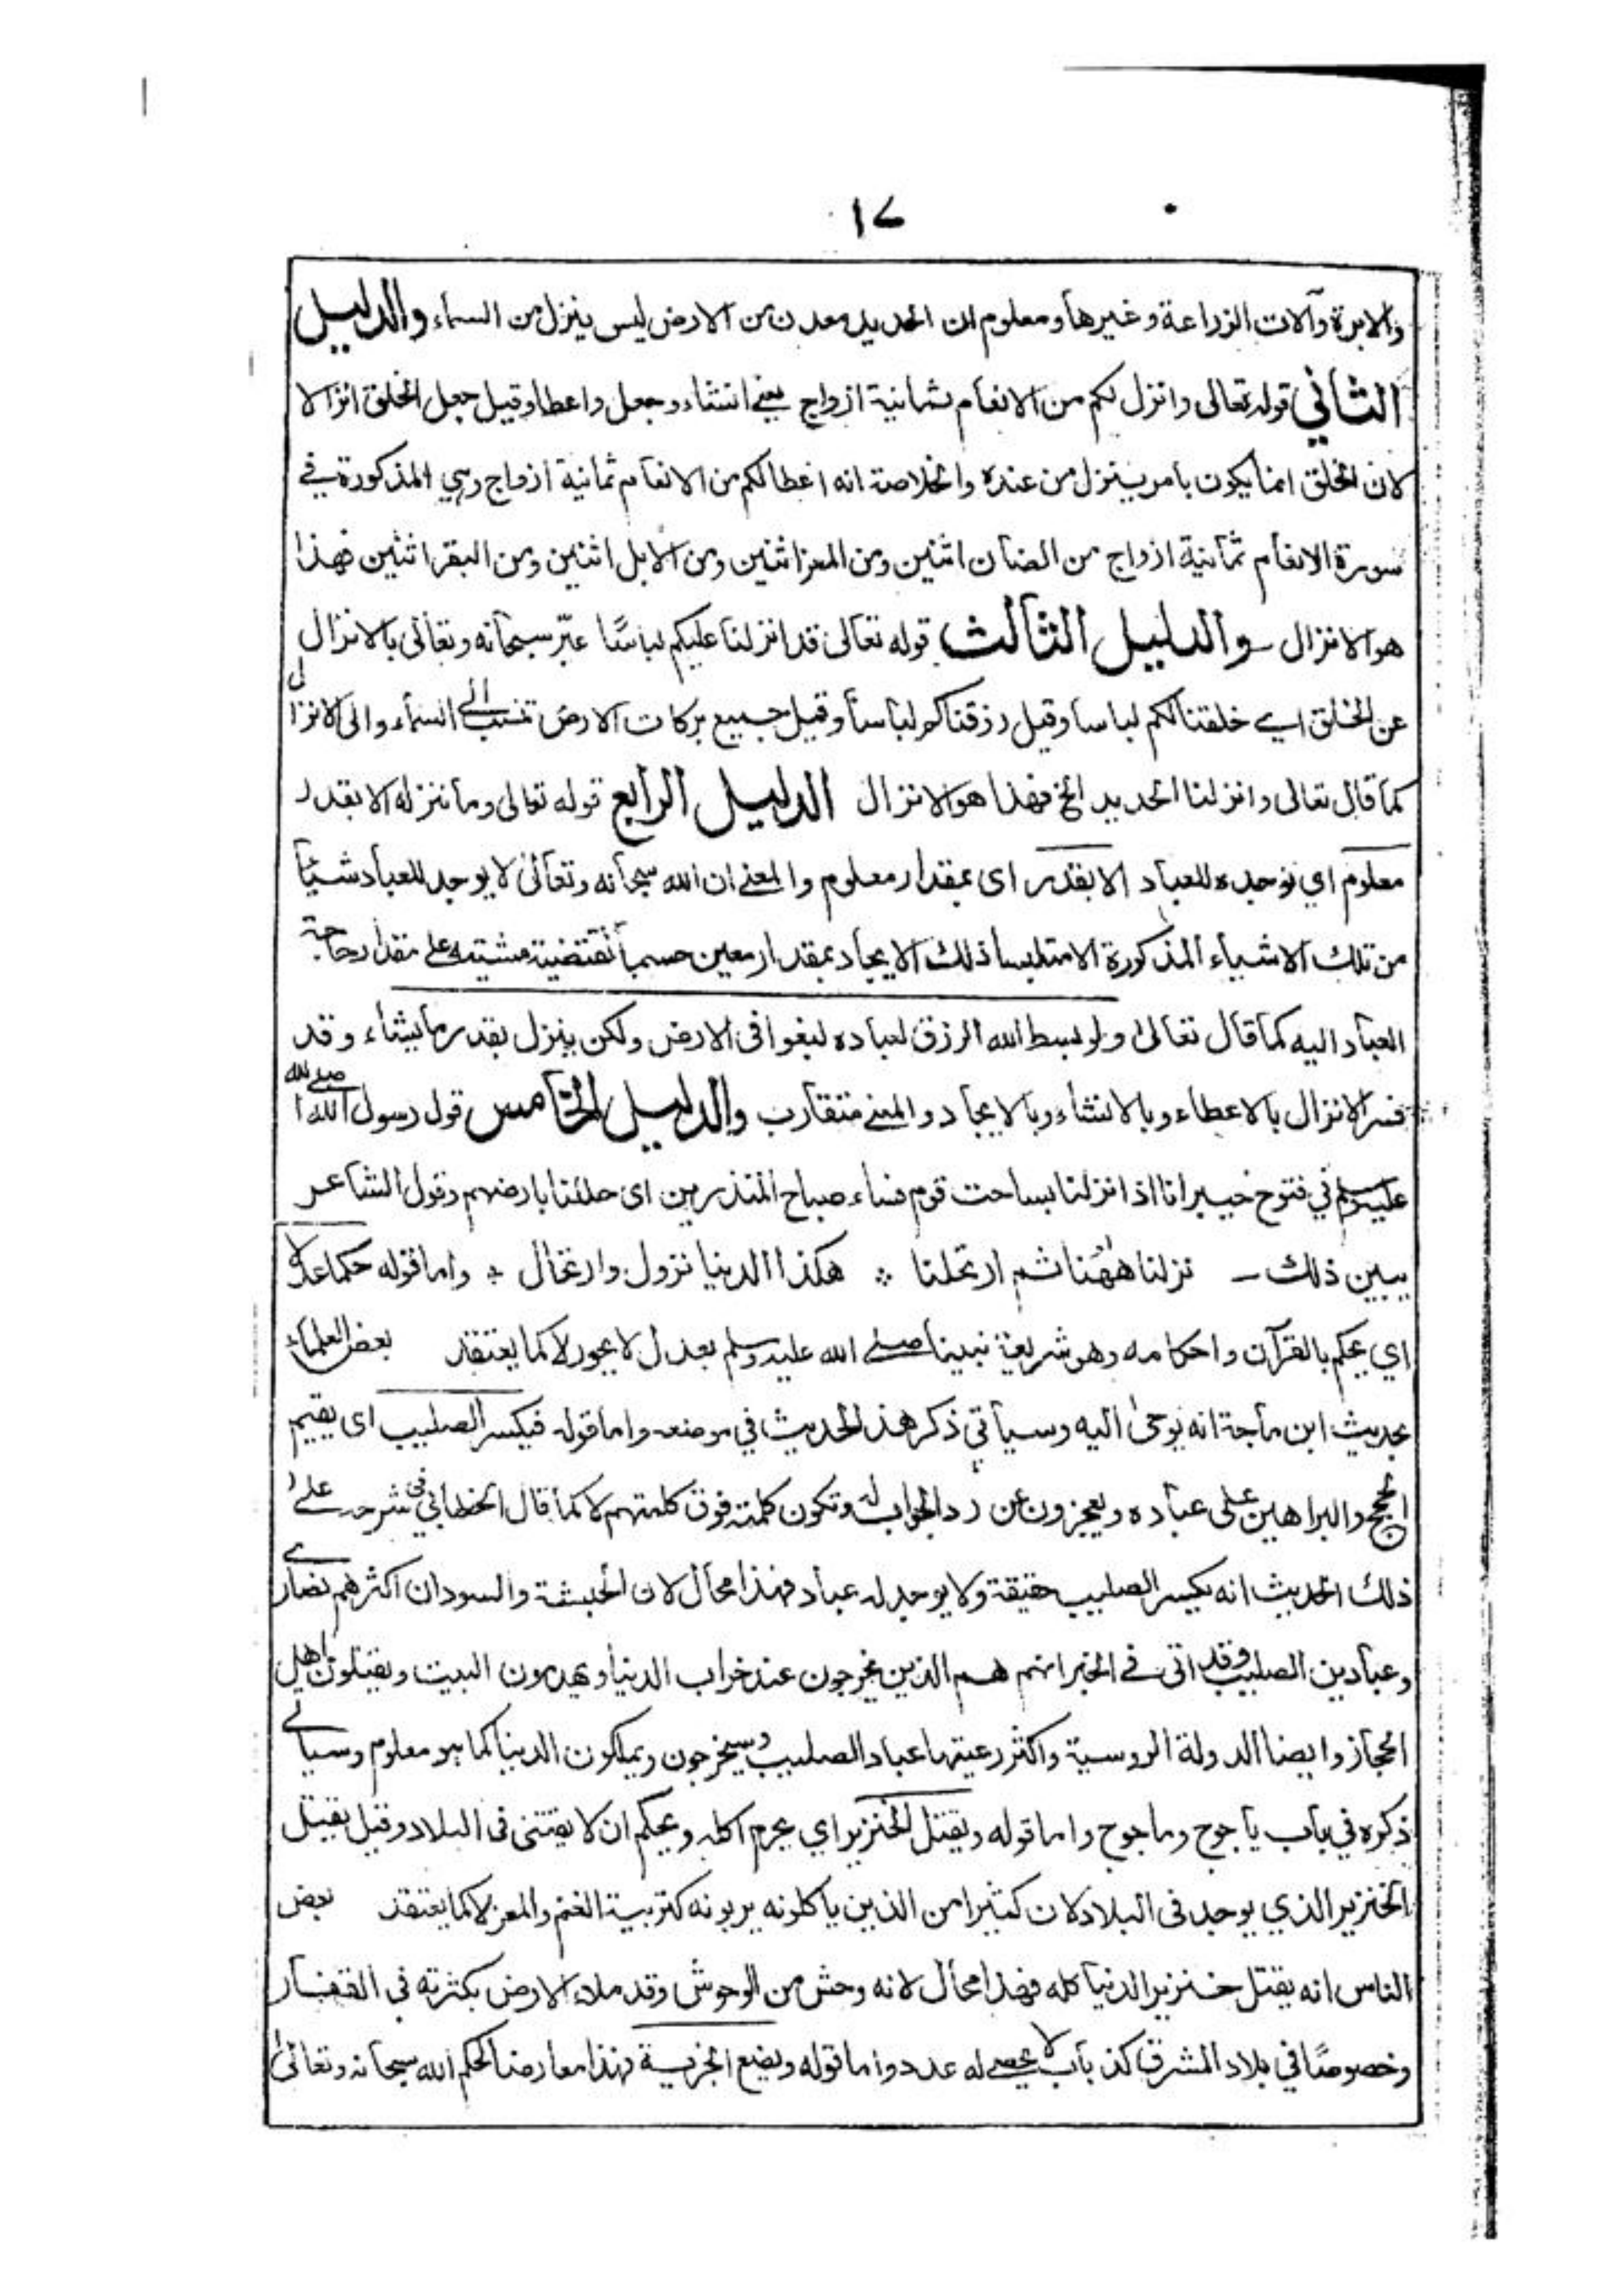 ١٧
والابرة وآلات الزراعة وغيرها ومعلوم ان الحديد معدن من الارض ليس ينزل من السماء والدليل
الثاني قوله تعالى وانزل لكم من الانعام ثمانية ازواج يعنے انشاء وجعل واعطا وقيل جعل الخلق انزالا
لان الخلق انما يكون بامر ينزل من عنده والخلاصة انه اعطا لكم من الانعام ثمانية ازواج وهي المذكورة في
سورة الانعام ثمانية ازواج من الضان اثنين ومن المعز اثنين ومن الابل اثنين ومن البقر اثنين فهذا
هو الانزال والدليل الثالث قوله تعالى قد انزلنا عليكم لباسًا عبّر سبحانه وتعالى بالانزال
عن الخلق اے خلقنا لكم لباسا وقيل رزقناكم لباسا وقيل جميع بركات الارض تنسب الے السماء والى الانزال
كما قال تعالى وانزلنا الحديد الخ فهذا هو الانزال الدليل الرابع قوله تعالى وما ننزله الا بقدر
معلوم اي نوجده للعباد الا بقدر اى بمقدار معلوم والمعنے ان الله سبحانه وتعالىٰ لا يوجد للعباد شيئاً
من تلك الاشياء المذكورة الا متلبسا ذلك الايجاد بمقدار معين حسبما تقتضيه مشيته على مقدار حاجة
العباد اليه كما قال تعالىٰ ولو بسط الله الرزق لعباده لبغوا فى الارض ولكن ينزل بقدر ما يشاء وقد
فسر الانزال بالاعطاء وبالانشاء وبالايجاد والمعنے متقارب والدليل الخامس قول رسول الله صلے الله
عليه وسلم في فتوح خيبر انا اذا نزلنا بساحت قوم فساء صباح المنذرين اى حللنا بارضهم وقول الشاعر
يبين ذلك ــ نزلنا ههنا ثم ارتحلنا ؞ هكذا الدنيا نزول وارتحال ؞ واما قوله حكما عدلا
اي يحكم بالقرآن واحكامه وهو شريعة نبينا صلے الله عليه وسلم بعدل لا بجور لا كما يعتقد بعض العلماء
بحديث ابن ماجة انه يوحىٰ اليه وسياتي ذكر هذا الحديث في موضعه واما قوله فيكسر الصليب اى يقيم
الحجج والبراهين على عباده ويعجزون عن رد الجواب له وتكون كلمته فوق كلمتهم لا كما قال الخطابي في شرحه علىٰ
ذلك الحديث انه يكسر الصليب حقيقة ولا يوجد له عباد فهذا محال لان الحبشة والسودان اكثرهم نصارے
وعبادين الصليب وقد اتى فے الخبر انهم هم الذين يخرجون عند خراب الدنيا ويهدمون البيت ويقتلون اهل
الحجاز وايضا الدولة الروسية واكثر رعيتها عباد الصليب وسيخرجون ويملكون الدنيا كما هو معلوم وسياتے
ذكره في باب ياجوج وماجوج واما قوله ويقتل الخنزير اي يحرم اكله ويحكم ان لا يقتنى فى البلاد وقيل يقتل
الخنزير الذي يوجد فى البلاد لان كثيرا من الذين ياكلونه يربونه كتربية الغنم والمعز لا كما يعتقد بعض
الناس انه يقتل خنزير الدنيا كله فهذا محال لانه وحش من الوحوش وقد ملاء الارض بكثرته فى القفار
وخصوصًا في بلاد المشرق كذباب لا يحصے له عدد واما قوله ويضع الجزية فهذا معارضا لحكم الله سبحانه وتعالىٰ